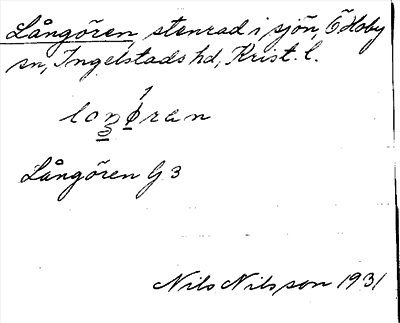 Långören, stenrad i sjön, Ö Hoby
sn, Ingelstads hd, Krist. l.
Långören G 3
Nils Nilsson 1931